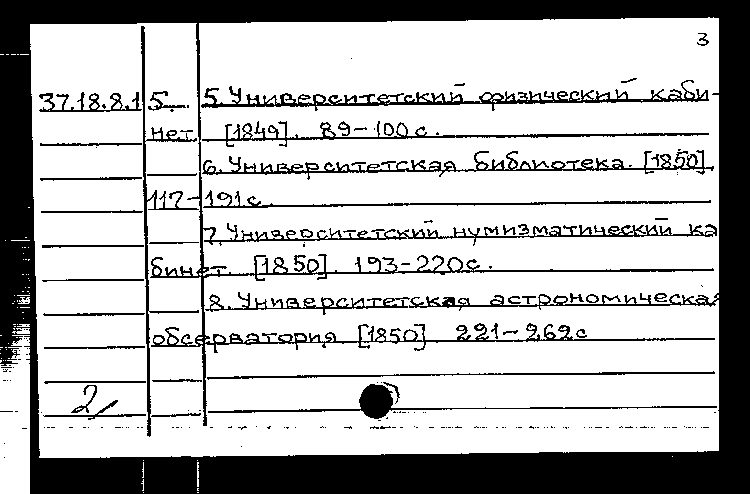 3
37.18.8.1 5. 5. Университетский физический каби-
нет. [1849]. 89-100 с.
6. Университетская библиотека. [1850].
117-191 с.
7. Университетский нумизматический ка
бинет. [1850]. 193-220 с.
8. Университетская астрономическая
обсерватория. [1850] 221-262 с
2/